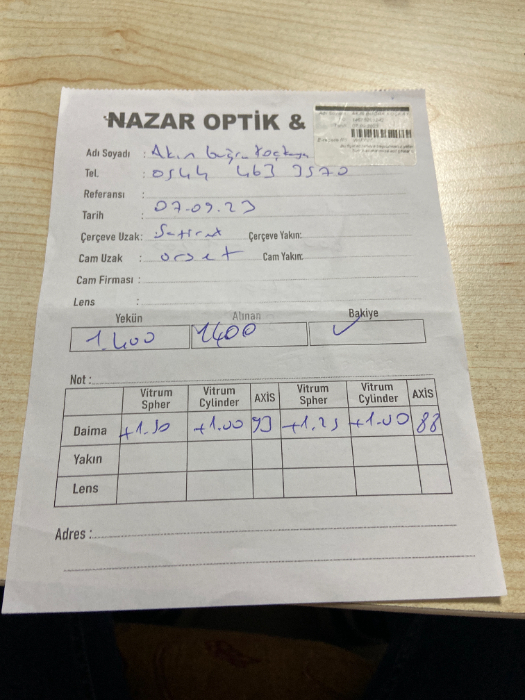 NAZAR OPTİK &
Adı Soyadı : Akın
Tel. : 0544 463 3570
Referansı :
Tarih : 07.09.23
Çerçeve Uzak: Çerçeve Yakın:
Cam Uzak : Cam Yakın:
Cam Firması :
Lens :
Yekün Alınan Bakiye
1.400 1400 ✓
Not :
Vitrum Spher Vitrum Cylinder AXİS Vitrum Spher Vitrum Cylinder AXİS
Daima +1.50 +1.00 93 +1.25 +1.00 88
Yakın
Lens
Adres :